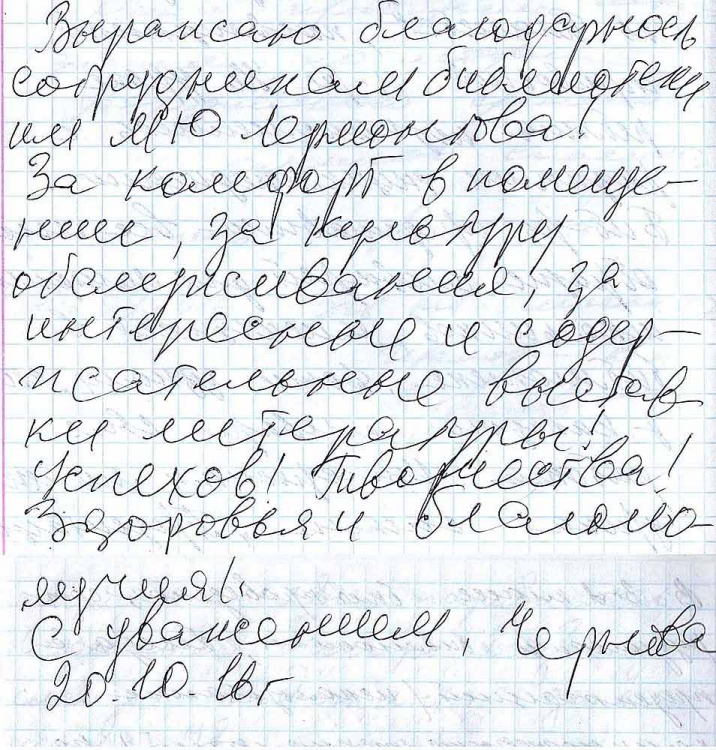 Выражаю благодарность
сотрудникам библиотеки
им М Ю Лермонтова!
За комфорт в помеще-
нии, за культуру
обслуживания, за
интересные и содер-
жательные выстав
ки литературы!
Успехов! Творчества!
Здоровья и благопо-
лучия!
С уважением, Чернова
20.10.16г